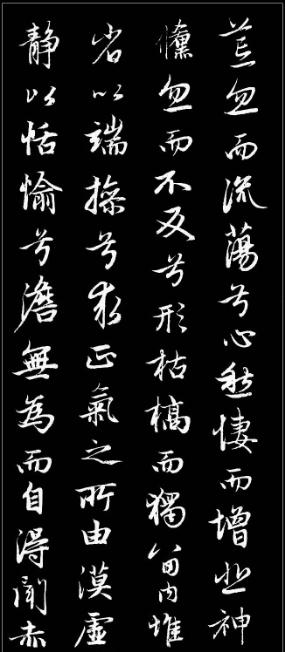 荒忽而流蕩兮心愁悽而增悲神
儵忽而不反兮形枯槁而獨留内惟
省以端操兮求正氣之所由漠虛
靜以恬愉兮澹無為而自得聞赤